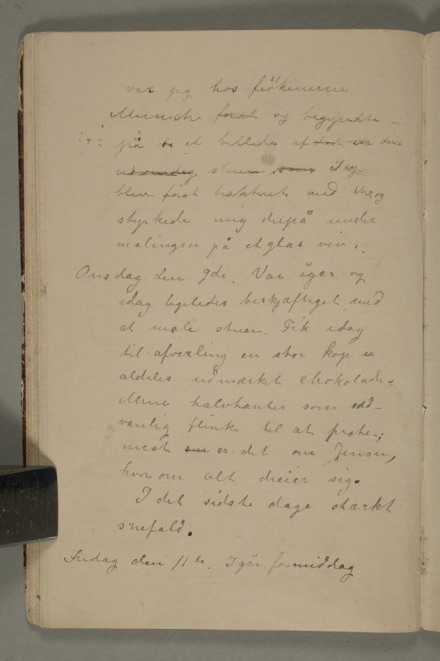 var jeg hos frökinerne
Munch forat og begyndte
på et billede af
stuen
blev först trakteret med og
styrkede mig også under
malingen på et glas vin.
Onsdag den 9de. Var igår og
idag ligeledes beskjæftiget med
at male stuen. Fik idag
til afvexling en stor kop
aldeles udmærket chokolade.
Mine halvtanter som sæd-
vanlig flinke til at prate;
mest er det om Jensen,
hvorom alt dreier sig.
I det sidste dage stærkt
snefald.
Fredag den 11te. Igår formiddag